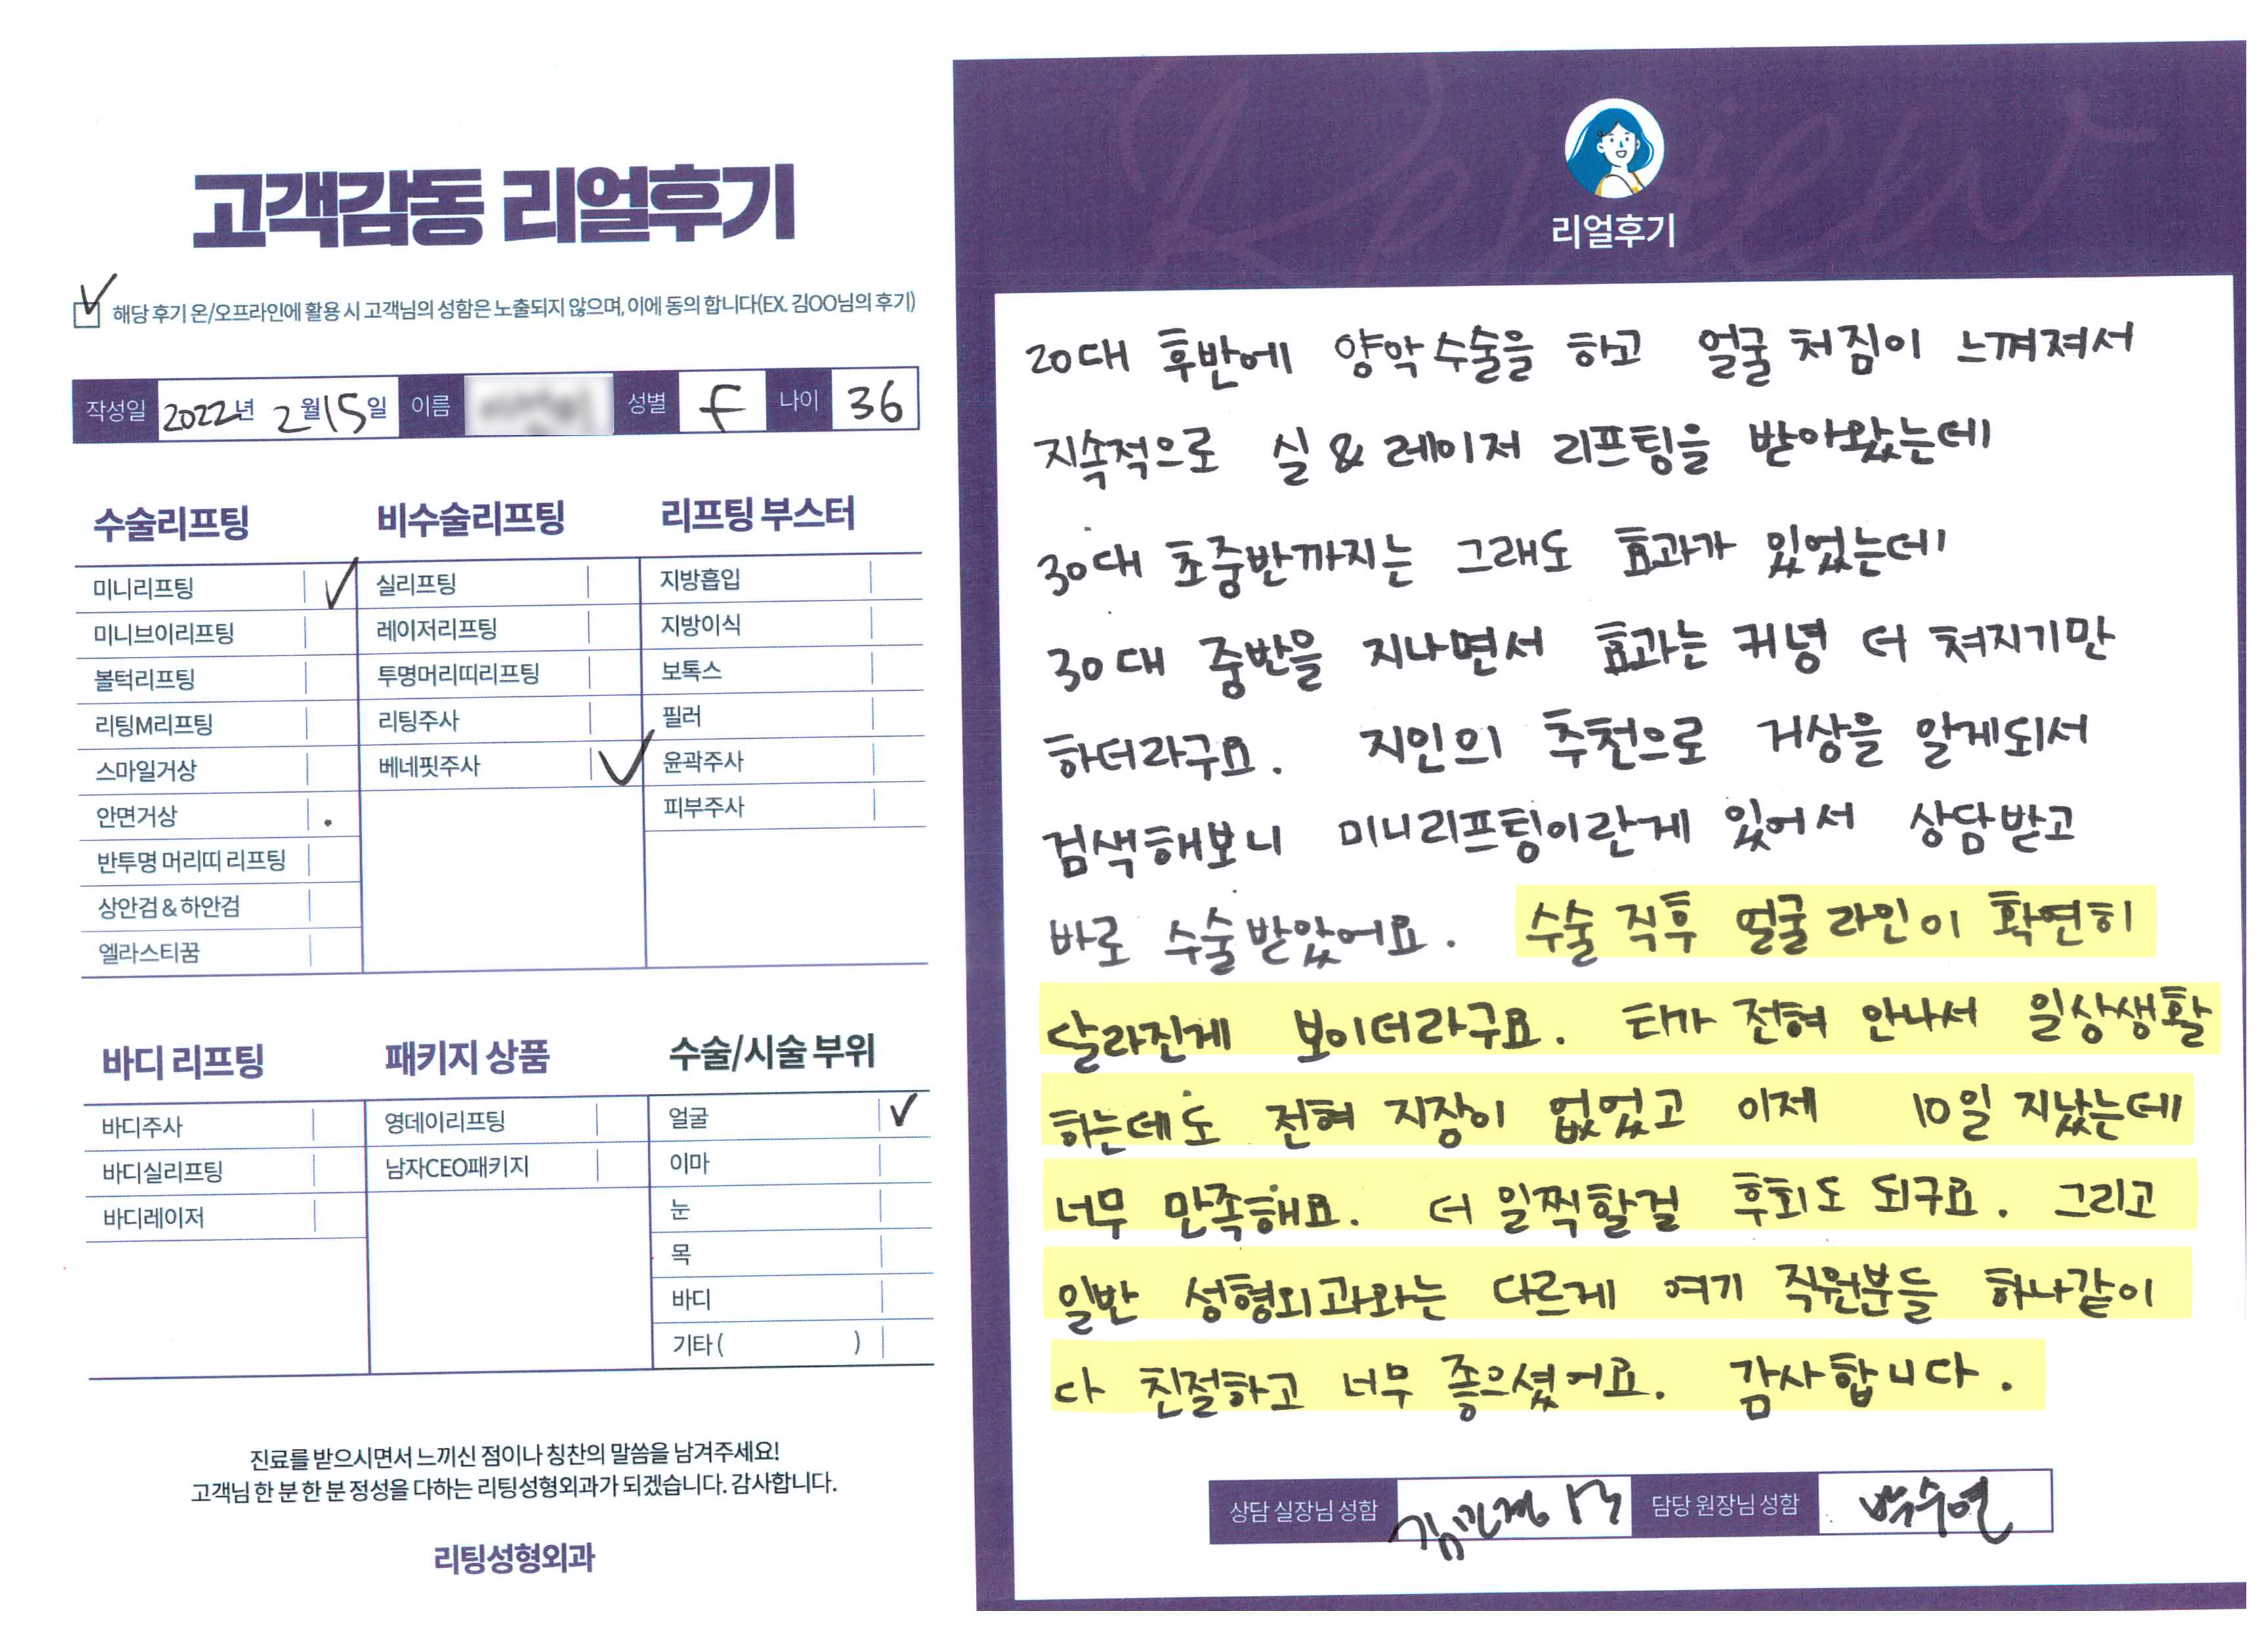 고객감동 리얼후기
해당 후기 온/오프라인에 활용 시 고객님의 성함은 노출되지 않으며, 이에 동의 합니다(EX. 김OO님의 후기)
작성일 2022년 2월 15일 이름 성별 F 나이 36
수술리프팅
미니리프팅
미니브이리프팅
볼턱리프팅
리팅M리프팅
스마일거상
안면거상
반투명 머리띠 리프팅
상안검 & 하안검
엘라스티꿈
비수술리프팅
실리프팅
레이저리프팅
투명머리띠리프팅
리팅주사
베네핏주사
리프팅 부스터
지방흡입
지방이식
보톡스
필러
윤곽주사
피부주사
바디 리프팅
바디주사
바디실리프팅
바디레이저
패키지 상품
영데이리프팅
남자CEO패키지
수술/시술 부위
얼굴
이마
눈
목
바디
기타 ( )
진료를 받으시면서 느끼신 점이나 칭찬의 말씀을 남겨주세요!
고객님 한 분 한 분 정성을 다하는 리팅성형외과가 되겠습니다. 감사합니다.
리팅성형외과
Review
리얼후기
20대 후반에 양악수술을 하고 얼굴 처짐이 느껴져서
지속적으로 실 & 레이저 리프팅을 받아왔는데
30대 초중반까지는 그래도 효과가 있었는데
30대 중반을 지나면서 효과는 커녕 더 쳐지기만
하더라구요. 지인의 추천으로 거상을 알게되서
검색해보니 미니리프팅이란게 있어서 상담받고
바로 수술받았어요. 수술 직후 얼굴라인이 확연히
달라진게 보이더라구요. 티가 전혀 안나서 일상생활
하는데도 전혀 지장이 없었고 이제 10일 지났는데
너무 만족해요. 더 일찍할걸 후회도 되구요. 그리고
일반 성형외과와는 다르게 여기 직원분들 하나같이
다 친절하고 너무 좋으셨어요. 감사합니다.
상담 실장님 성함 담당 원장님 성함 박수연